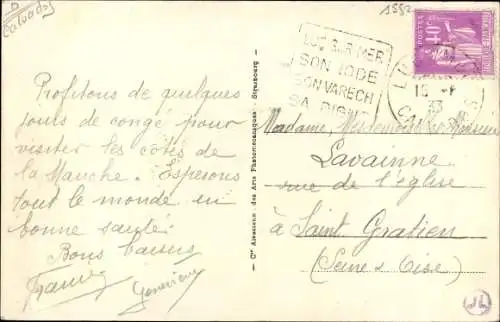 Calvados
1552
POSTES
40c
LUC SUR MER
SON IODE
SON VARECH
SA DIGUE
15
33
Profitons de quelques
jours de congé pour
visiter les côtes de
la Manche. Espérons
tout le monde en
bonne santé.
Bons baisers
Geneviève
— Cie Alsacienne des Arts Photomécaniques - Strasbourg —
Madame, Monsieur
Lavainne
rue de l'église
à Saint Gratien
(Seine & Oise)